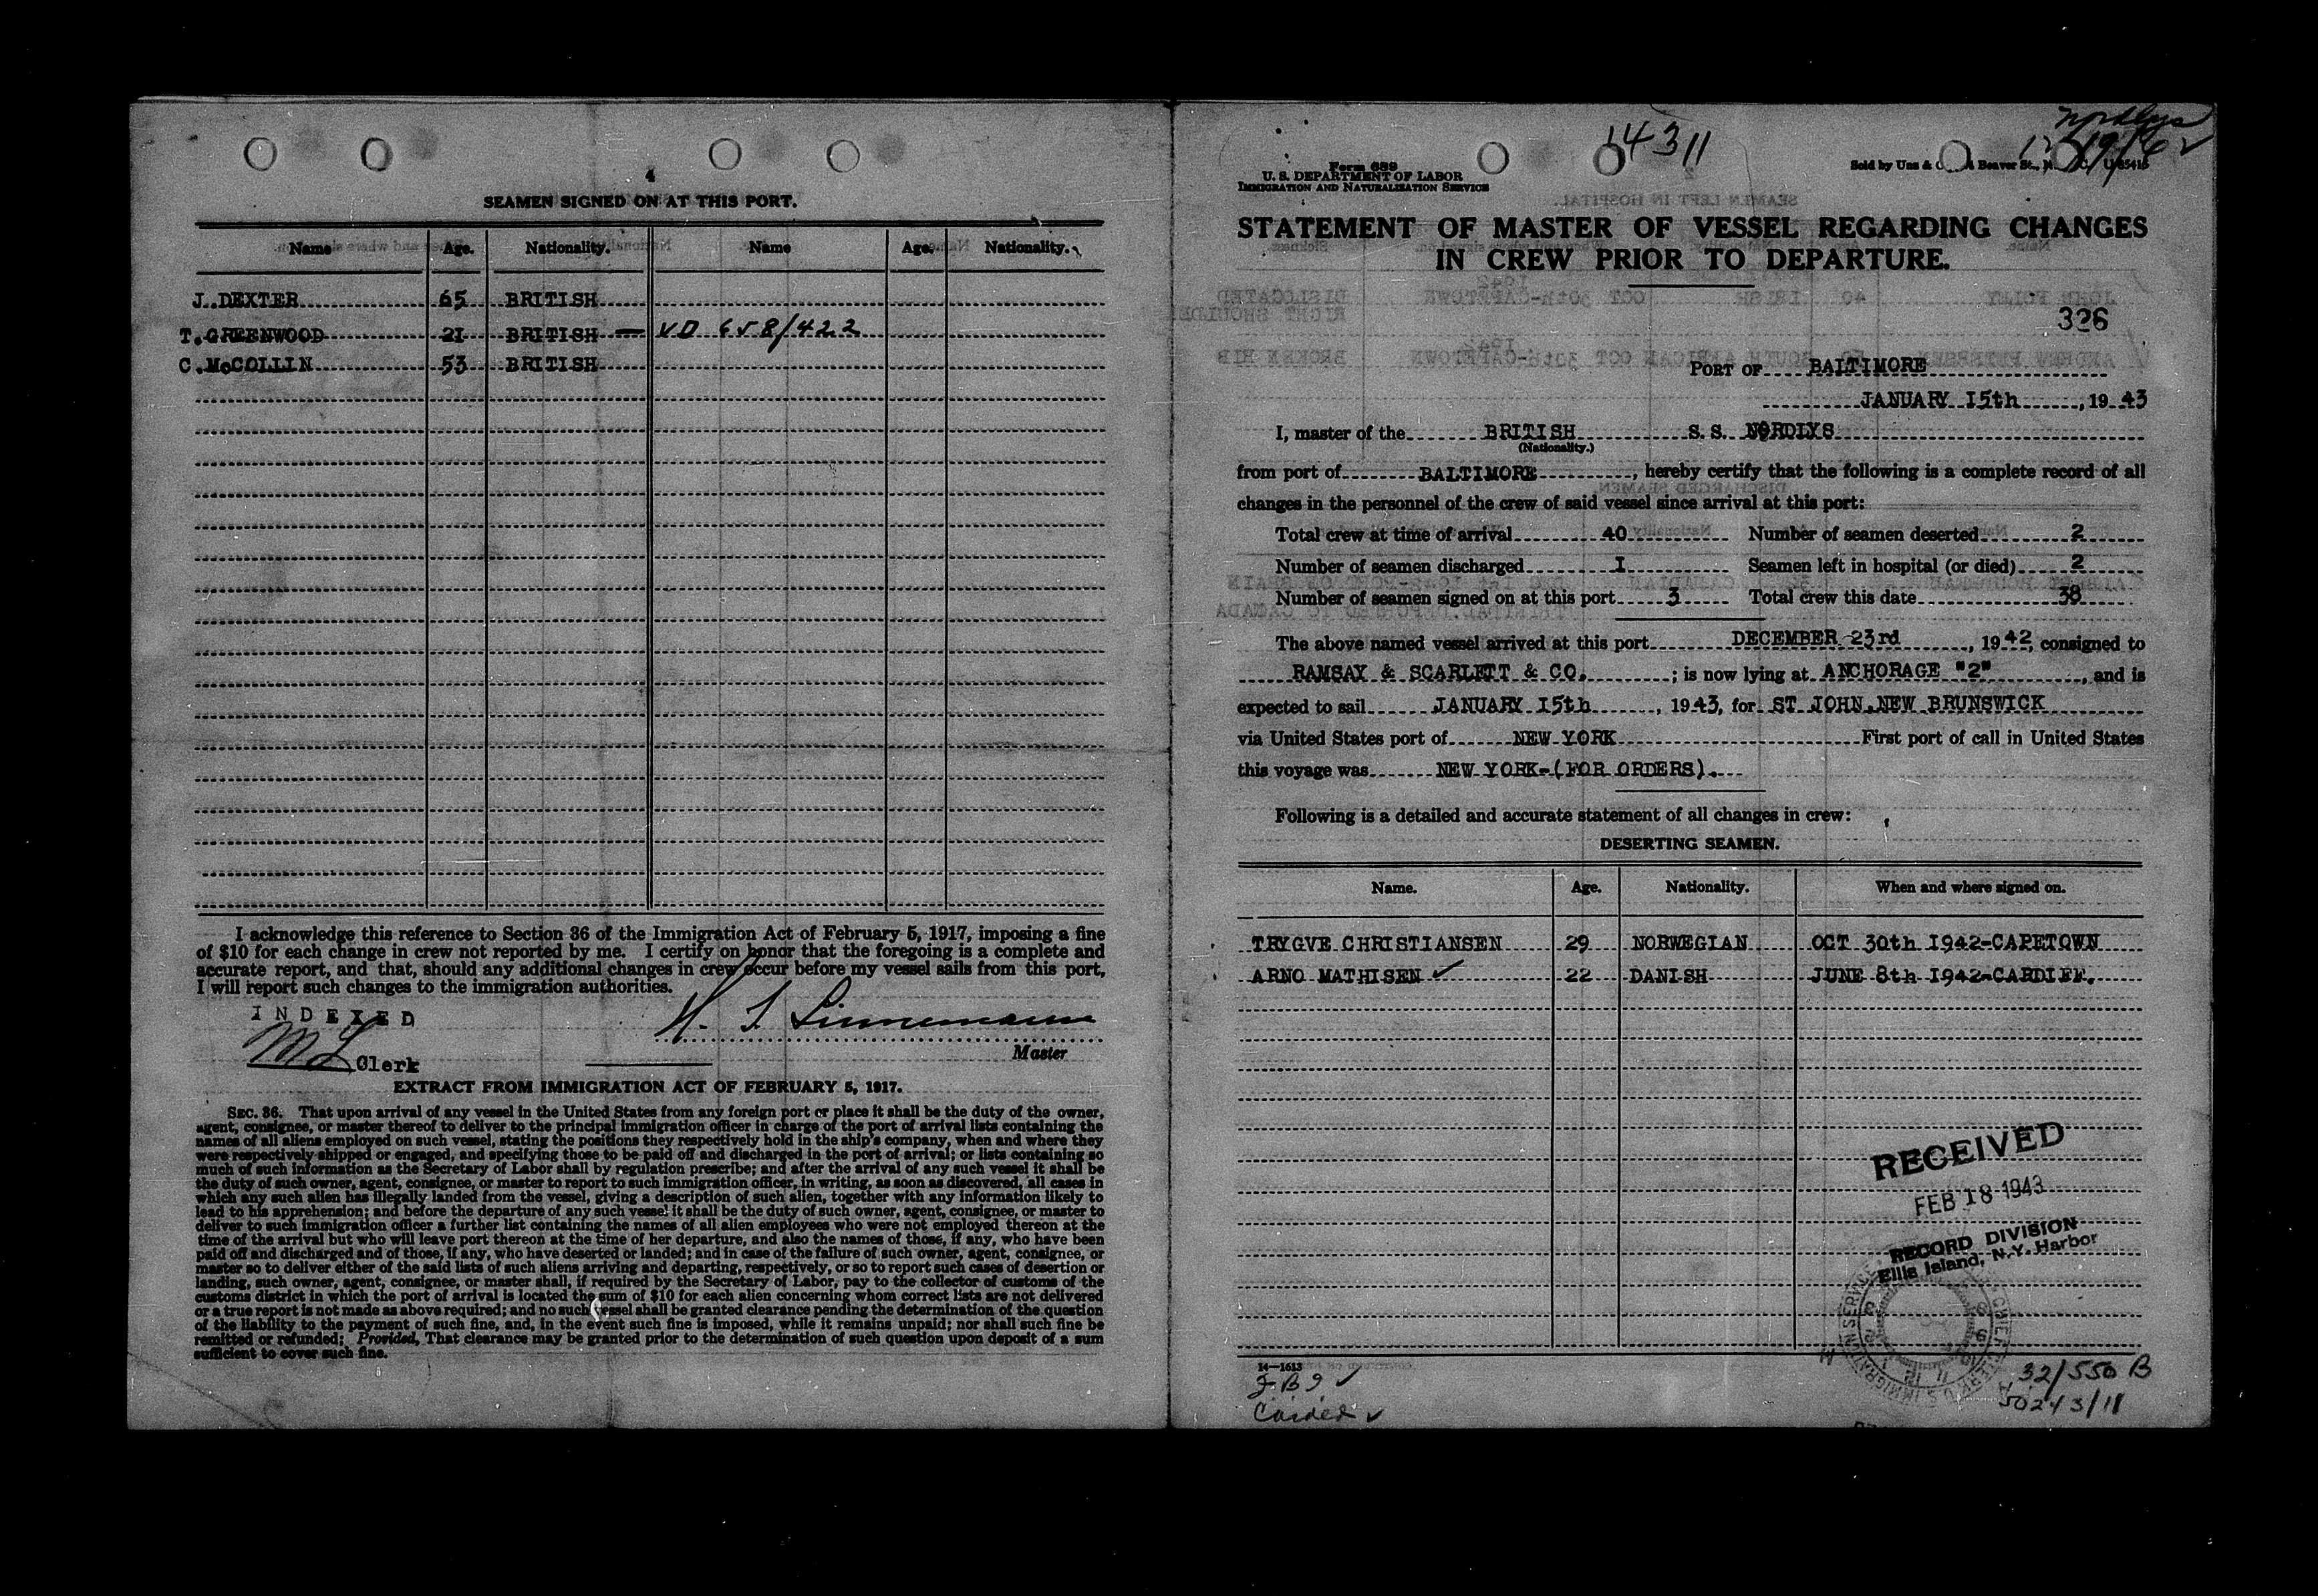 4
SEAMEN SIGNED ON AT THIS PORT.
Name Age. Nationality. Name Age. Nationality.
J. DEXTER 65 BRITISH
T. GREENWOOD 21 BRITISH — VD 658/422
C. McCOLLIN 53 BRITISH
I acknowledge this reference to Section 36 of the Immigration Act of February 5, 1917, imposing a fine
of $10 for each change in crew not reported by me. I certify on honor that the foregoing is a complete and
accurate report, and that, should any additional changes in crew occur before my vessel sails from this port,
I will report such changes to the immigration authorities.
INDEXED
H. J. Linnemann
Master
ML Clerk
EXTRACT FROM IMMIGRATION ACT OF FEBRUARY 5, 1917.
SEC. 36. That upon arrival of any vessel in the United States from any foreign port or place it shall be the duty of the owner,
agent, consignee, or master thereof to deliver to the principal immigration officer in charge of the port of arrival lists containing the
names of all aliens employed on such vessel, stating the positions they respectively hold in the ship's company, when and where they
were respectively shipped or engaged, and specifying those to be paid off and discharged in the port of arrival; or lists containing so
much of such information as the Secretary of Labor shall by regulation prescribe; and after the arrival of any such vessel it shall be
the duty of such owner, agent, consignee, or master to report to such immigration officer, in writing, as soon as discovered, all cases in
which any such alien has illegally landed from the vessel, giving a description of such alien, together with any information likely to
lead to his apprehension; and before the departure of any such vessel it shall be the duty of such owner, agent, consignee, or master to
deliver to such immigration officer a further list containing the names of all alien employees who were not employed thereon at the
time of the arrival but who will leave port thereon at the time of her departure, and also the names of those, if any, who have been
paid off and discharged and of those, if any, who have deserted or landed; and in case of the failure of such owner, agent, consignee, or
master so to deliver either of the said lists of such aliens arriving and departing, respectively, or so to report such cases of desertion or
landing, such owner, agent, consignee, or master shall, if required by the Secretary of Labor, pay to the collector of customs of the
customs district in which the port of arrival is located the sum of $10 for each alien concerning whom correct lists are not delivered
or a true report is not made as above required; and no such vessel shall be granted clearance pending the determination of the question
of the liability to the payment of such fine, and, in the event such fine is imposed, while it remains unpaid; nor shall such fine be
remitted or refunded; Provided, That clearance may be granted prior to the determination of such question upon deposit of a sum
sufficient to cover such fine.
Nordlys
14311
Form 689
U. S. DEPARTMENT OF LABOR
IMMIGRATION AND NATURALIZATION SERVICE
Sold by Unz & Beaver St.,
STATEMENT OF MASTER OF VESSEL REGARDING CHANGES
IN CREW PRIOR TO DEPARTURE.
326
PORT OF BALTIMORE
JANUARY 15th, 1943
I, master of the BRITISH S. S. NORDLYS
(Nationality.)
from port of BALTIMORE, hereby certify that the following is a complete record of all
changes in the personnel of the crew of said vessel since arrival at this port:
Total crew at time of arrival 40 Number of seamen deserted 2
Number of seamen discharged 1 Seamen left in hospital (or died) 2
Number of seamen signed on at this port 3 Total crew this date 38
The above named vessel arrived at this port DECEMBER 23rd, 1942, consigned to
RAMSAY & SCARLETT & CO.; is now lying at ANCHORAGE "2", and is
expected to sail JANUARY 15th, 1943, for ST JOHN, NEW BRUNSWICK
via United States port of NEW YORK First port of call in United States
this voyage was NEW YORK-(FOR ORDERS).
Following is a detailed and accurate statement of all changes in crew:
DESERTING SEAMEN.
Name. Age. Nationality. When and where signed on.
TRYGVE CHRISTIANSEN 29 NORWEGIAN OCT 30th 1942-CAPETOWN
ARNO MATHISEN ✓ 22 DANISH JUNE 8th 1942-CARDIFF.
RECEIVED
FEB 18 1943
RECORD DIVISION
Ellis Island, N.Y. Harbor
14—1613
Carded ✓
32/550 B